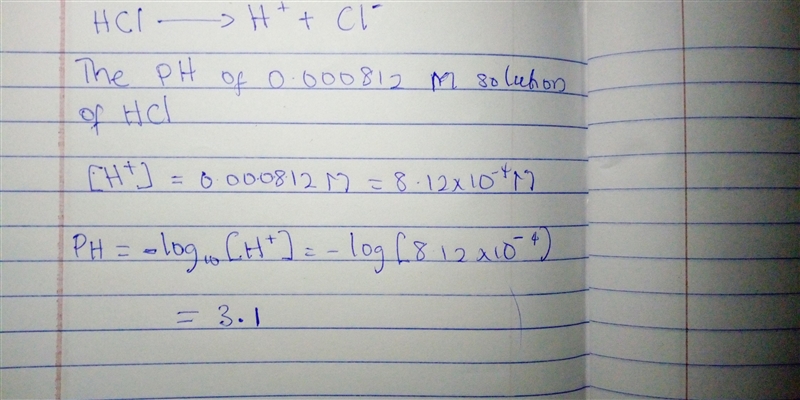 HCl ⟶ H⁺ + Cl⁻
The PH of 0.000812 M solution
of HCl
[H⁺] = 0.000812 M = 8.12x10⁻⁴M
PH = -log₁₀ [H⁺] = -log [8 12 x10⁻⁴)
= 3.1